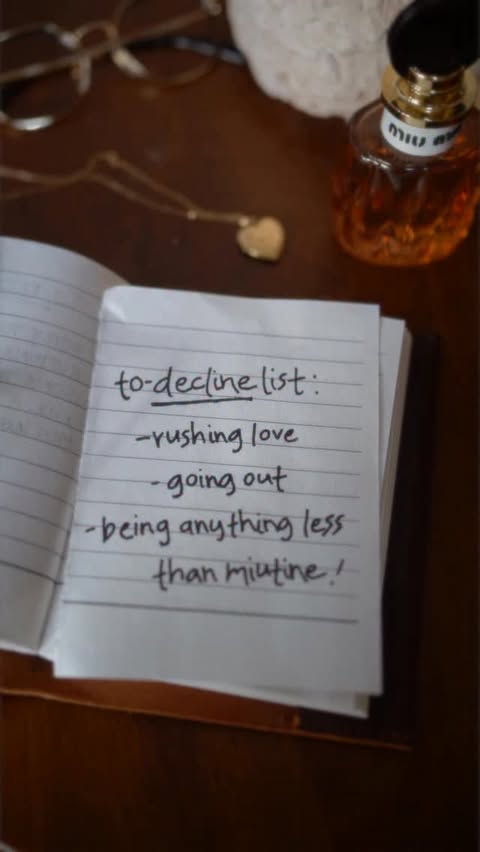 MIU
to-decline list:
-rushing love
- going out
-being anything less
than miutine!